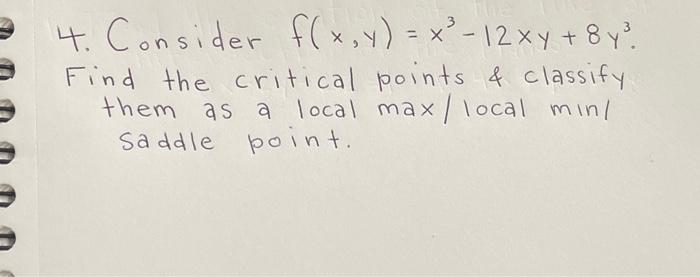 4. Consider f(x,y) = x³ - 12xy + 8y³.
Find the critical points & classify
them as a local max/local min/
saddle point.